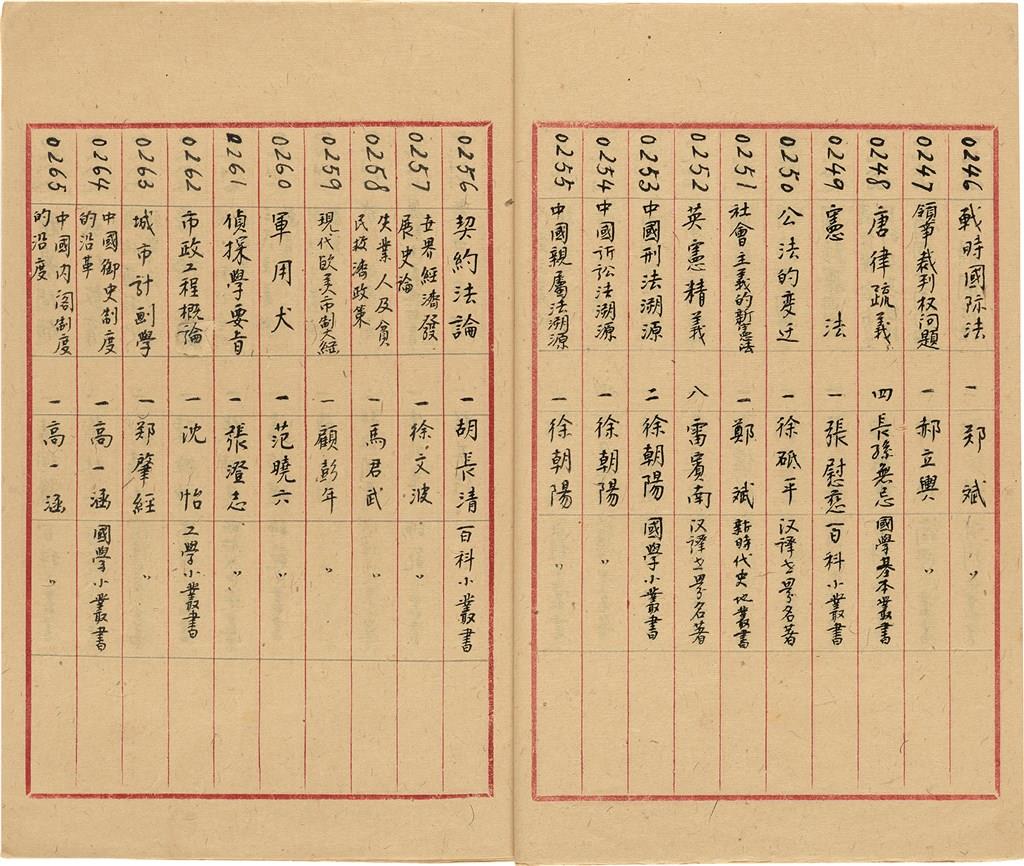 0246 戰時國际法 一 郑斌 〃
0247 領事裁判权问題 一 郝立輿 〃
0248 唐律疏義 四 長孫無忌 國學基本叢書
0249 憲法 一 張慰慈 百科小叢書
0250 公法的变迁 一 徐砥平 汉譯世界名著
0251 社會主義的新憲法 一 鄭斌 新時代史地叢書
0252 英憲精義 八 雷賓南 汉譯世界名著
0253 中國刑法溯源 二 徐朝陽 國學小叢書
0254 中國訴訟法溯源 一 徐朝陽 〃
0255 中國親屬法溯源 一 徐朝陽 〃
0256 契約法論 一 胡長清 百科小叢書
0257 世界經濟發展史論 一 徐文波 〃
0258 失業人及貧民救濟政策 一 馬君武 〃
0259 現代欧美市制大綱 一 顧彭年 〃
0260 軍用犬 一 范曉六 〃
0261 偵探學要旨 一 張澄志 〃
0262 市政工程概論 一 沈怡 工學小叢書
0263 城市計劃學 一 郑肇經 〃
0264 中國御史制度的沿革 一 高一涵 國學小叢書
0265 中國内阁制度的沿度 一 高一涵 〃